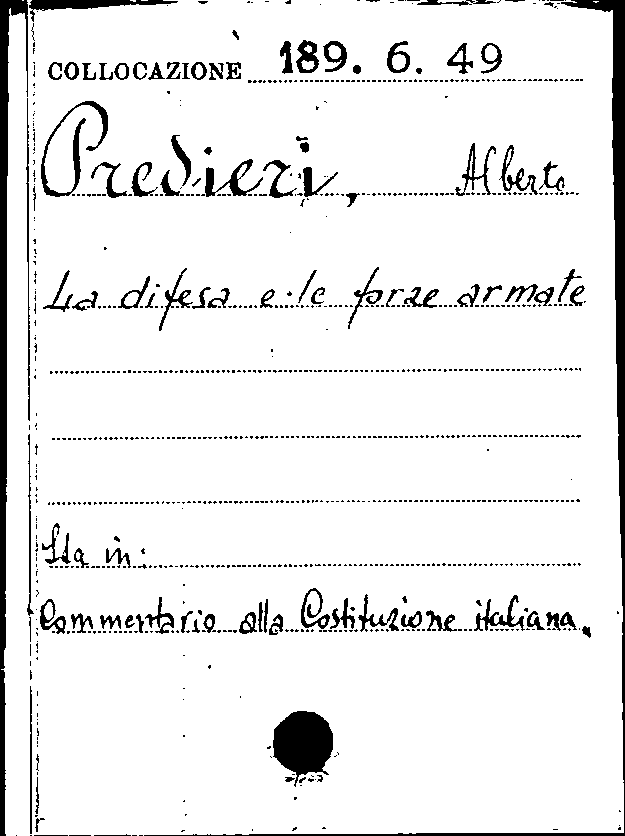 COLLOCAZIONE 189. 6. 49
Predieri, Alberto
La difesa e le forze armate
Sta in:
Commentario alla Costituzione italiana.